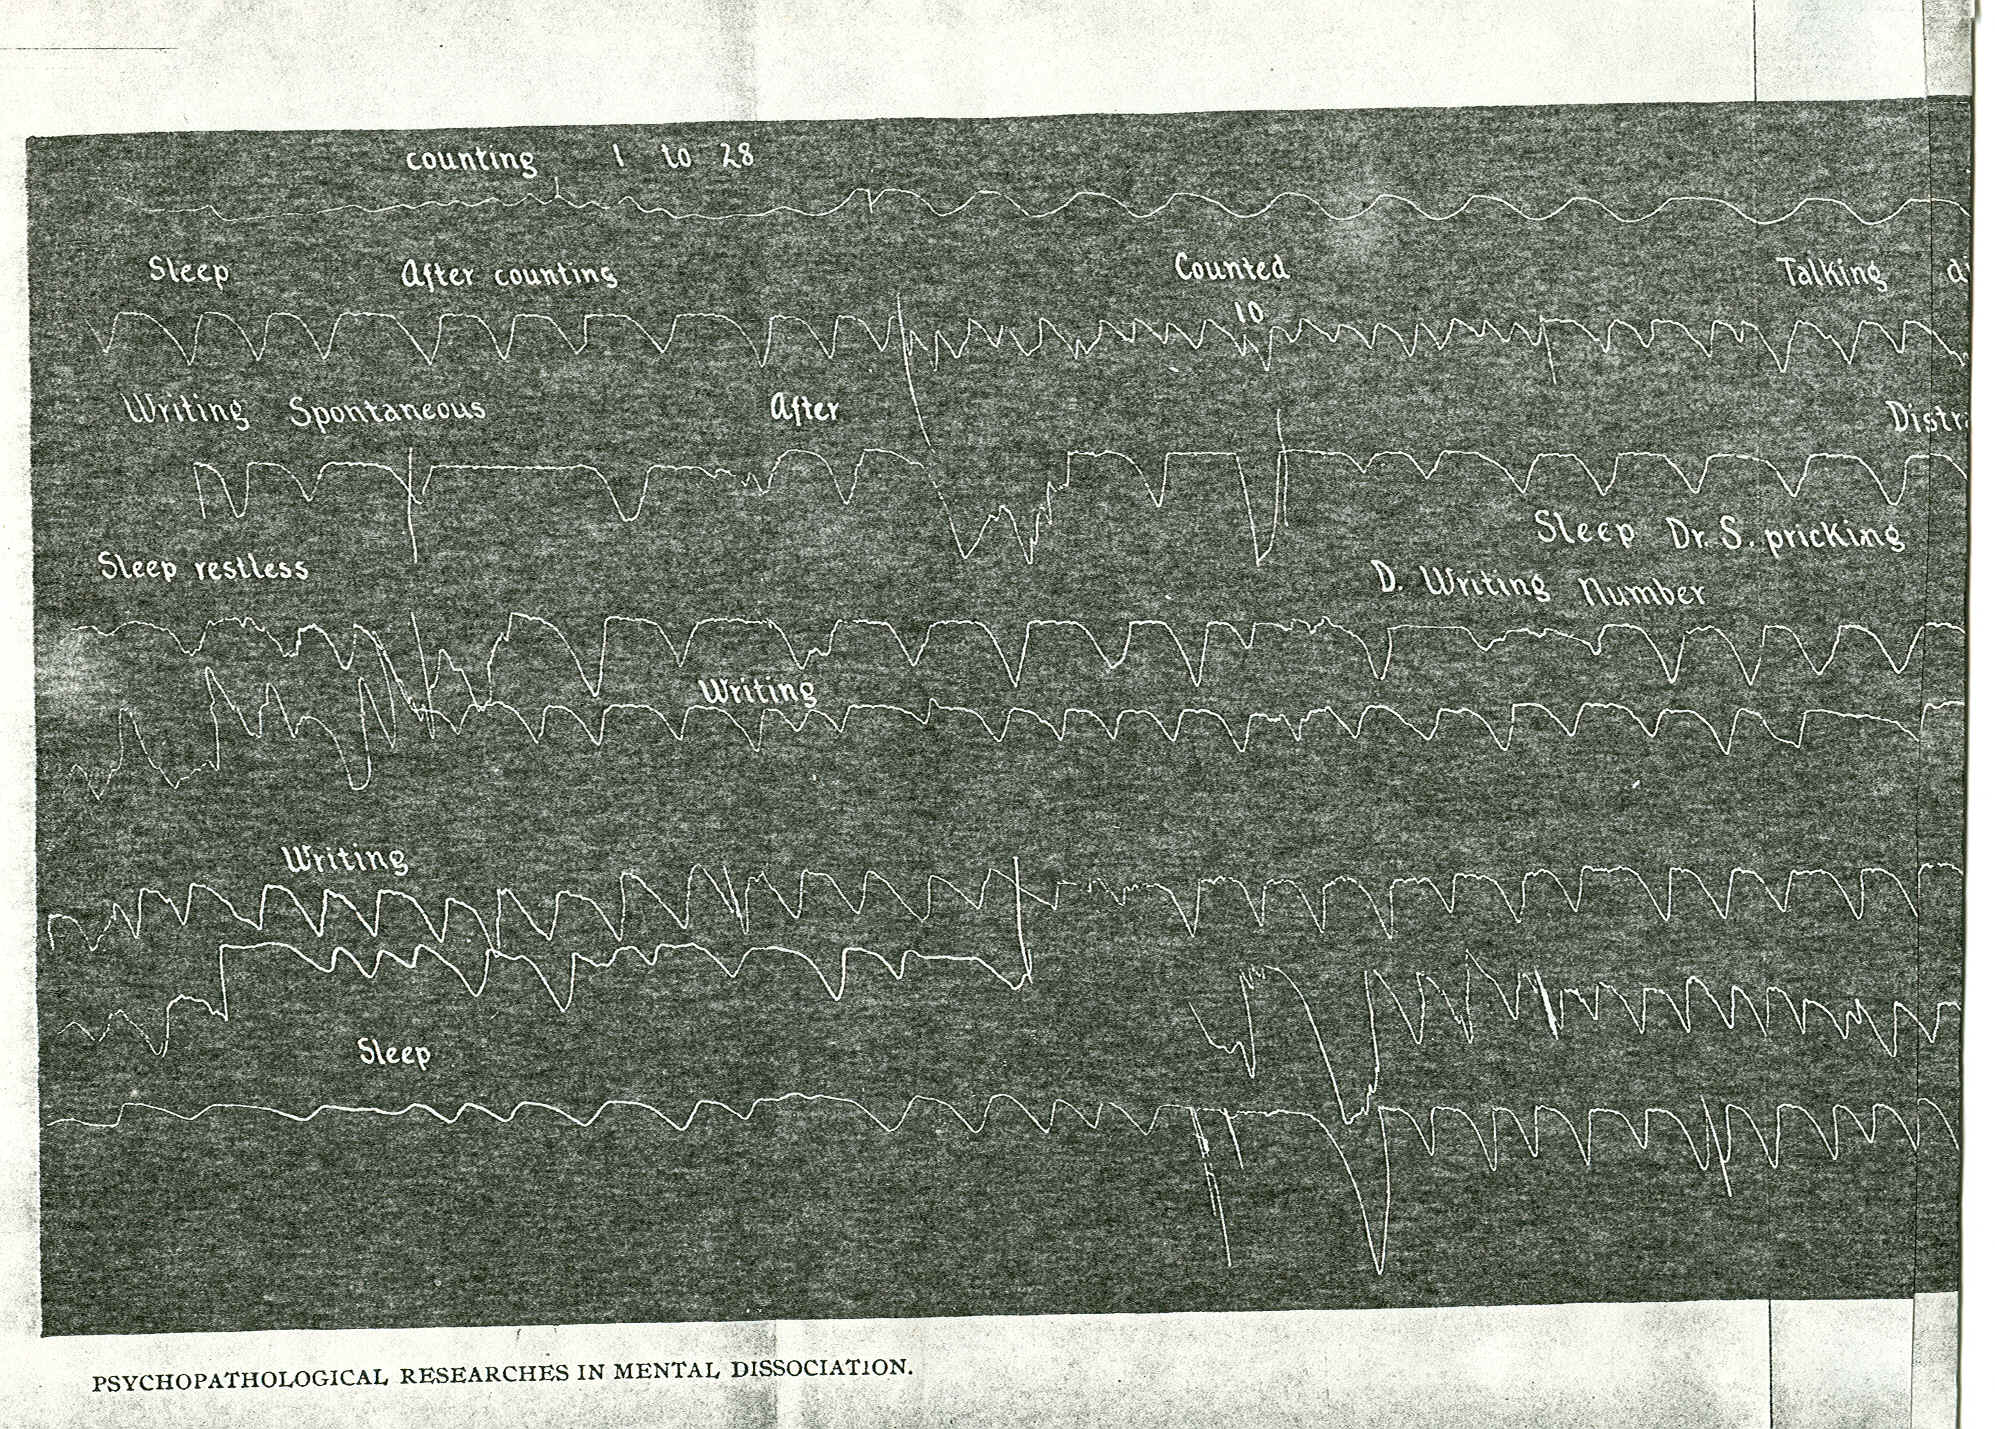 counting 1 to 28
Sleep After counting Counted Talking
10
Writing Spontaneous After
Sleep Dr. S. pricking
Sleep restless D. Writing Number
Writing
Writing
Sleep
PSYCHOPATHOLOGICAL RESEARCHES IN MENTAL DISSOCIATION.